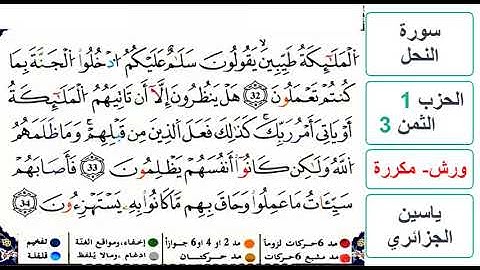 الْمَلَٰٓئِكَةُ طَيِّبِينَ يَقُولُونَ سَلَٰمٌ عَلَيْكُمُ ادْخُلُوا۟ الْجَنَّةَ بِمَا
كُنتُمْ تَعْمَلُونَ 32 هَلْ يَنظُرُونَ إِلَّا أَن تَاتِيَهُمُ الْمَلَٰٓئِكَةُ
أَوْ يَاتِيَ أَمْرُ رَبِّكَ كَذَٰلِكَ فَعَلَ الَّذِينَ مِن قَبْلِهِمْ وَمَا ظَلَمَهُمُ
اللَّهُ وَلَٰكِن كَانُوٓا۟ أَنفُسَهُمْ يَظْلِمُونَ 33 فَأَصَابَهُمْ
سَيِّـَٔاتُ مَا عَمِلُوا۟ وَحَاقَ بِهِم مَّا كَانُوا۟ بِهِۦ يَسْتَهْزِءُونَ 34
سورة
النحل
الحزب 1
الثمن 3
ورش- مكررة
ياسين
الجزائري
مد 6 حركات لزوماً
مد 2 او 4 او 6 جوازاً
إخفاء، ومواقع الغنّة
تفخيم
مد مشبع 6 حركات
مد حركتان
ادغام، ومالا يُلفظ
قلقلة